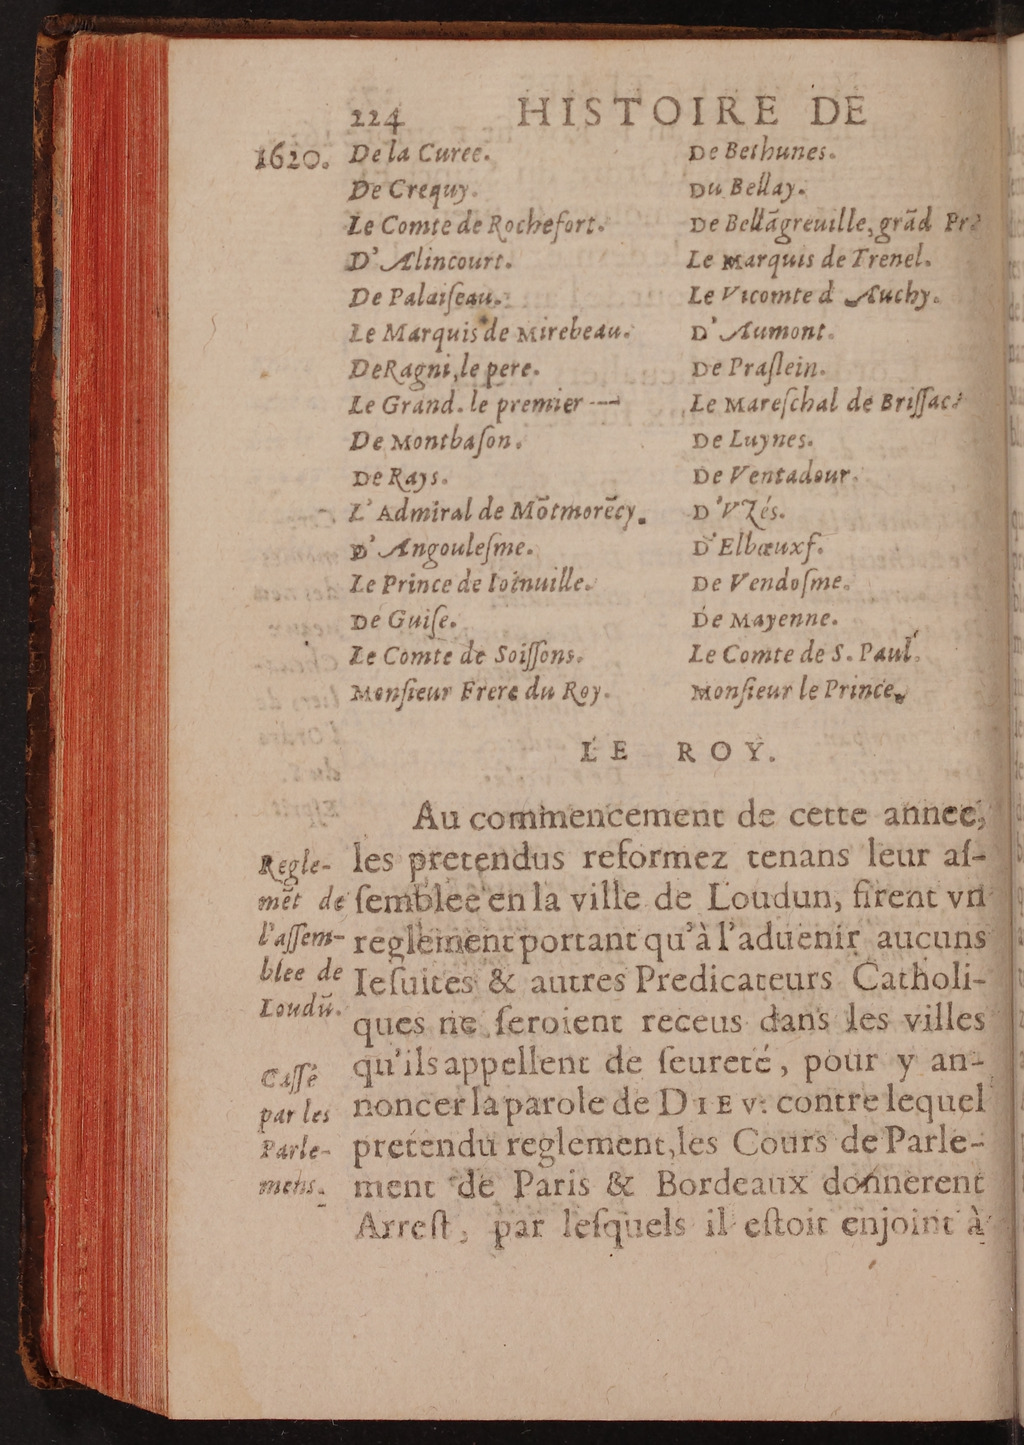 224 HISTOIRE DE
1620. De la Curee. De Bethunes.
De Crequy. Du Bellay.
Le Comte de Rochefort. De Bellãgreuille, grãd Pr
D'Alincourt. Le Marquis de Trenel.
De Palaiſeau. Le Vicomte d'Auchy.
Le Marquis de Mirebeau. D'Aumont.
De Ragni, le pere. De Praſlein.
Le Grand. le premier --- Le Mareſchal de Briſſac:
De Montbaſon. De Luynes.
De Rays. De Ventadour.
L'Admiral de Mõtmorẽcy. D'VZés.
D'Angouleſme. D'Elbœuxf.
Le Prince de Ioinuille. De Vendoſme.
De Guiſe. De Mayenne.
Le Comte de Soiſſons. Le Comte de S. Paul.
Monſieur Frere du Roy. Monſieur le Prince,
LE ROY.
Au commencement de cette annee,
les pretendus reformez tenans leur aſ-
ſemblee en la ville de Loudun, firent vn
reglement portant qu'à l'aduenir aucuns
Ieſuites & autres Predicateurs Catholi-
ques ne ſeroient receus dans les villes
qu'ils appellent de ſeureté, pour y an-
noncer la parole de DIEV: contre lequel
pretendu reglement, les Cours de Parle-
ment de Paris & Bordeaux donnerent
Arreſt, par leſquels il eſtoit enjoint à
Regle-
mẽt de
l'aſſem-
blee de
Loudũ.
Caſſé
par les
Parle-
mens.